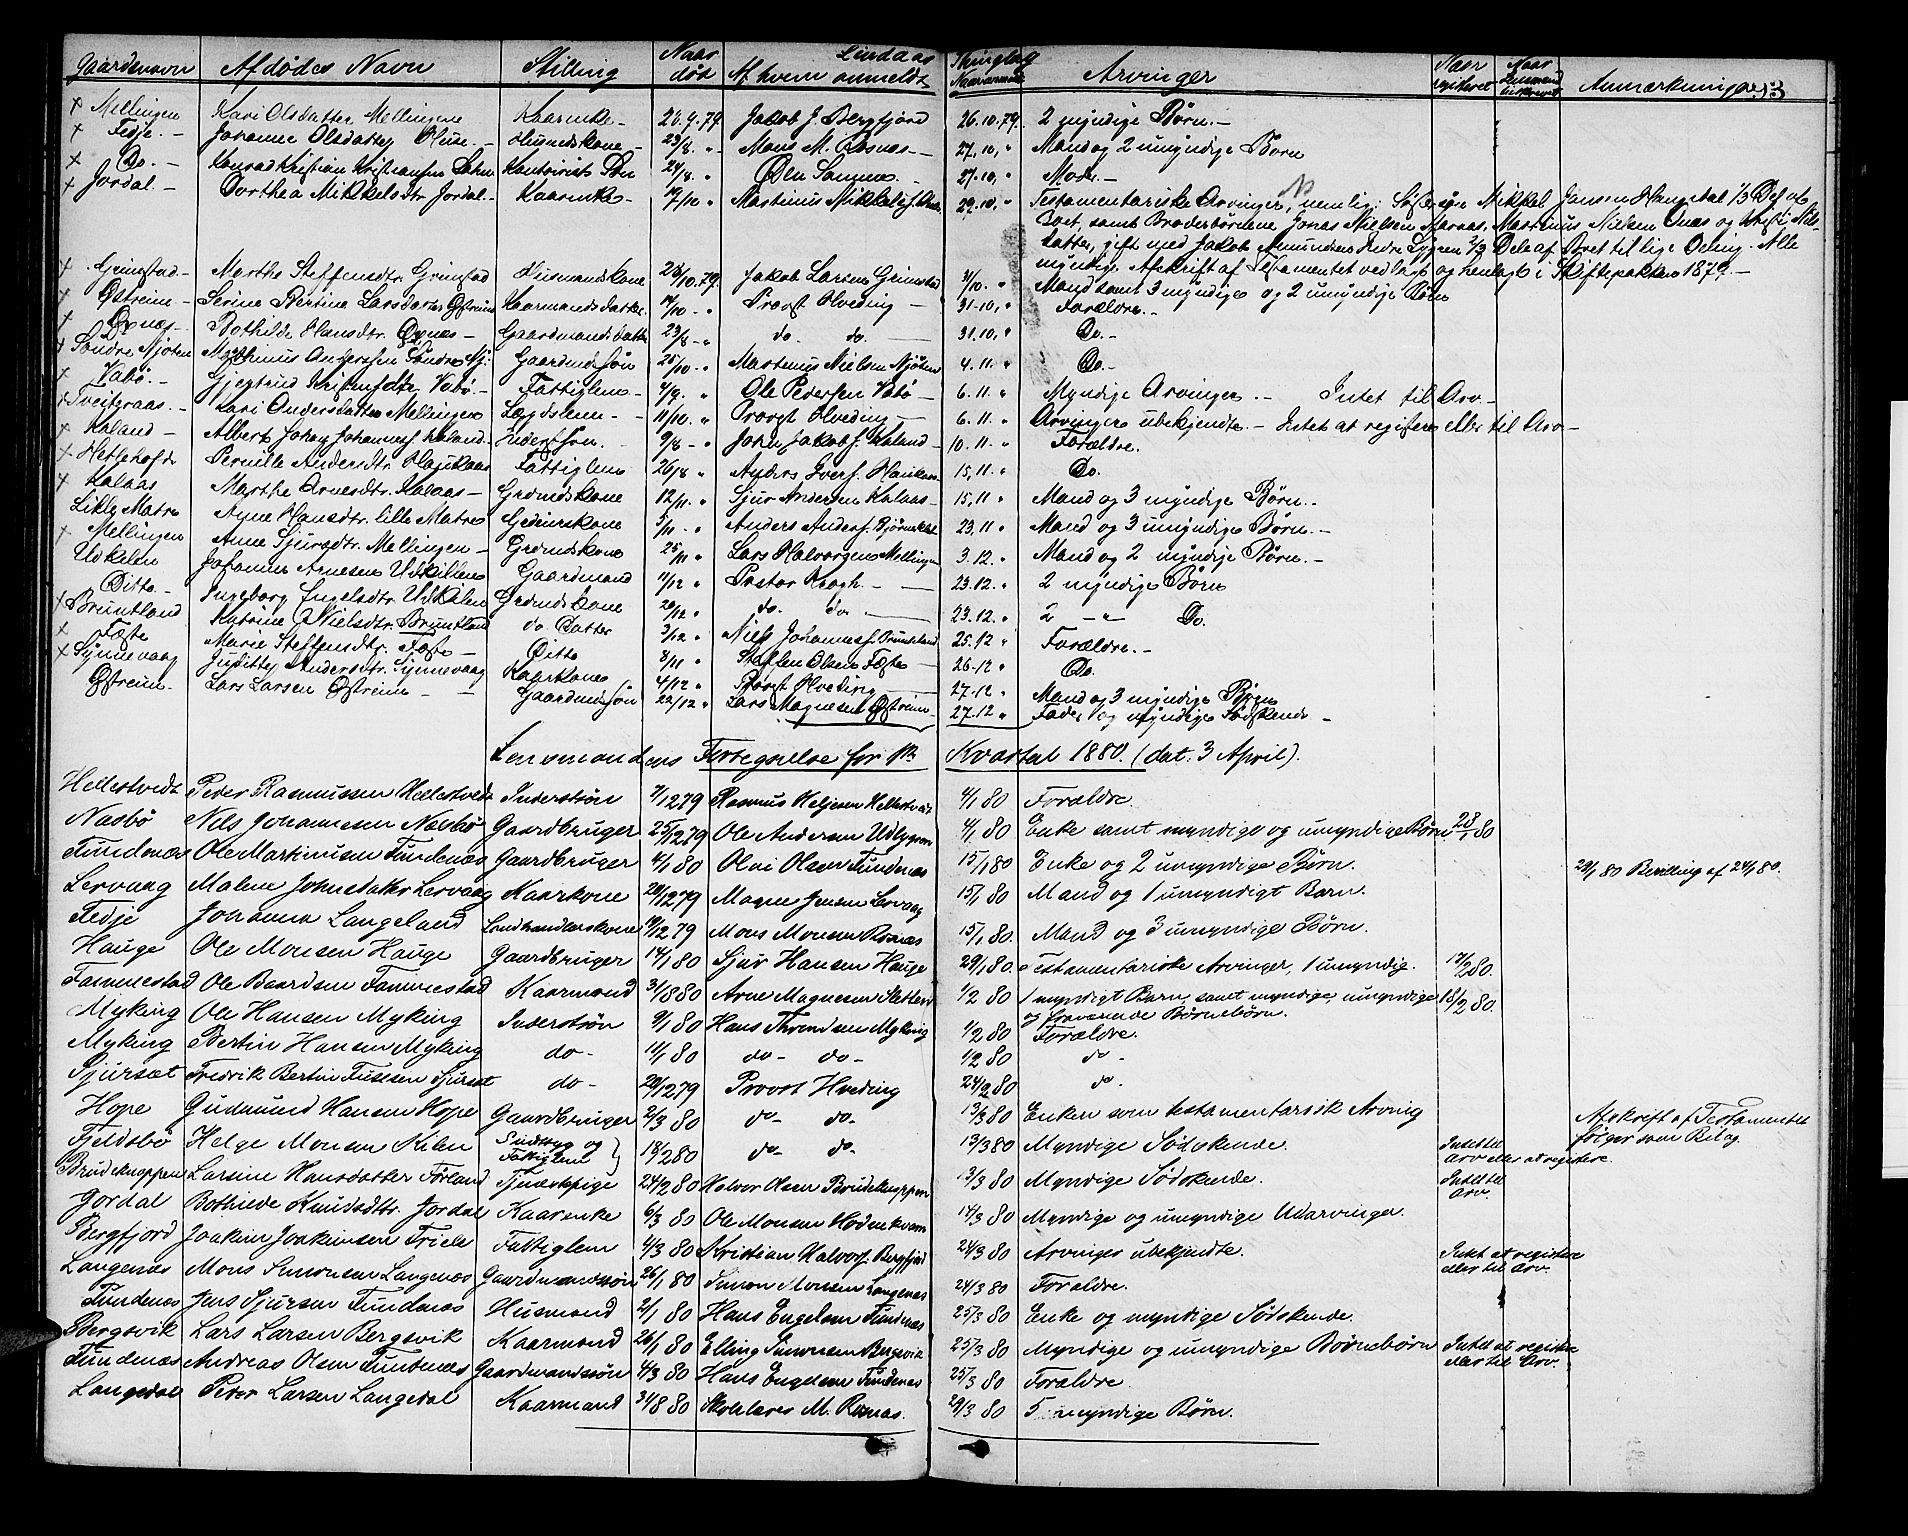 Lindaas Thinglag 93
Gaardenavn Afdødes Navn Stilling Naar død Af hvem anmeldt Naar anmeldt Arvinger Naar registreret Naar Anmærkninger
Mellingen Kari Olsdatter Mellingen Kaarenke 26.10.79. 2 myndige Børn.
Jakob J. Bergfjord
Fedje. Johanne Olsdatter Husmandskone 23/8 " Mons M. Rosnæs 27.10. " Mand og 2 umyndige Børn
Do. Konrad Kristian Kristiansen Søn 24/8 " 27.10. " Moder
Jordal Dorthea Mikkelsdtr Jordal Kaarenke 19/10 " Martinus Mikkels. 29.10. " Testamentariske Arvinger, nemlig: Mikkel Jansen 1/3 Del af
Boet, samt Broderbørnene Jonas Nielsen Martinus Nielsen og Nils-
datter, gift med Jakob Amundsen Indre Lygren 2/3 Dele af Boet til lige Deling. Alle
myndige. Afskrift af Testamentet vedlagt og henlagt i Skiftepakken 1879.
Grimstad Marthe Steffensdtr. Grimstad Husmandskone 28/10.79. Jakob Larsen Grimstad 31/10. " Mand samt 3 myndige og 2 umyndige Børn
Østreim Serine Bertine Larsdatter Østreim Kaarmandsdatter 14/10 " Provst Hveding 31.10. " Forældre.
Bothilde Hansdtr. Gaardmandsdatter 23/8 " do do. 31.10. " Do.
Søndre Njøten Andersen Søndre Nj: Gaardmdssøn 25/10 " Martinus Nielsen Njøten 4.11. " Do.
Vabø. Gjertrud Vabø Fattiglem 4/9 " Ole Pedersen Vabø 6.11. " Myndige Arvinger. Intet til Arv.
Tveitgraas. Kari Andersdatter Mellingen Lægdslem 11/10. " Provst Hveding 6.11. " Arvinger ubekjendte. Intet at registrere eller til Arv
Kaland Albert Johan Johannes. Kaland Inderstsøn. 9/8 " John Jakobs. Kaland 10.11. " Forældre.
Pernille Andersdtr. Fattiglem 26/8 " Anders 15.11. " Do.
Kalaas Marthe Arnesdtr. Kalaas Grdmdskone 12/11. " Sjur Andersen Kalaas 15.11 " Mand og 3 myndige Børn.
Lille Matre Hansdtr. lille Matre 5/11 " Anders Anders. 23.11 " Mand og 3 umyndige Børn.
Mellingen Anne Sjursdtr. Mellingen Grdmdskone 25/11 " Lars Halvorsen Mellingen 3.12. " Mand og 2 myndige Børn.
Udkilen Johannes Arnesen Udkilen Gaardmand 11/12 " Pastor Krogh 23.12. " 2 myndige Børn
Ditto Ingeborg Engelsdtr. Udkilen Grdmdskone 20/12 " do. do. 23.12. " 2 " Do.
Bruntland Katrine Nielsdtr. Bruntland do Datter 3/12 " Niels Johannes. Bruntland 25.12 " Forældre.
Fæste Marie Steffensdtr. Fæste Ditto 8/11 " Steffen Olsen Fæste 26.12 " Do.
Synnevaag Andersdtr. Synnevaag Kaarkone 4/12 " Provst Hveding 27.12 " Mand og 3 myndige Børn
Østreim. Lars Larsen Østreim Gaardmdssøn 22/12 " Lars Magnesen Østreim 27.12 " Fader og myndige Sødskende
Lensmandens Fortegnelse for 1ste Kvartal 1880. (dat. 3 April).
Hellestvedt Peder Rasmussen Hellestvedt Inderstsøn 7/12 79 Rasmus Heljesen Hellestvedt 4/1 80 Forældre.
Næsbø Nils Johannesen Næsbø Gaardbruger 25/12 79 Ole Andersen Udlygren 4/1 80 Enke samt myndige og umyndige Børn 28/1 80
Fundenæs Ole Martinusen Fundenæs Gaardbruger 4/1 80 Olai Olsen Fundenæs 15/1 80 Enke og 2 umyndige Børn. 29/1 80 Bevilling af 24/1 80.
Lervaag Malene Johnsdatter Lervaag Kaarkone 20/12 79 Magne Jensen Lervaag 15/1 80 Mand og 1 umyndigt Barn.
Fedje Johanna Langeland Landhandlerskone 19/12 79 Mons Monsen Rosnæs 15/1 80. Mand og 3 umyndige Børn.
Hauge Ole Monsen Hauge Gaardbruger 14/1 80 Sjur Hansen Hauge 29/1 80. Testamentariske Arvinger, 1 umyndig. 14/2 80.
Fammestad Ole Baardsen Fammestad Kaarmand 31/8 80 Arne Magnesen Sletten 1/2 80 1 myndigt Barn samt myndige, umyndige 18/2 80.
og fraværende Børnebørn.
Myking Ole Hansen Myking Inderstsøn 9/1 80 Hans Throndsen Myking 1/2 80 Forældre.
Myking Bertin Hansen Myking do 11/1 80 do do 1/2 80 do
Sjursæt Fredrik Bertin Fusesen Sjursæt do 20/12 79 Provst Hveding 24/2 80 do
Hope Gudmund Hansen Hope Gaardbruger 2/3 80 do do 13/3 80 Enken som testamentarisk Arving Afskrift af Testamentet
følger som Bilag
Fjeldsbø Helge Monsen Kilen Sindssyg og Fattiglem 18/2 80 do do 13/3 80 Myndige Sødskende. Intet til
Arv eller at registrere.
Brudeknappen Larsine Hansdatter Førland Tjenestepige 24/2 80 Halvor Olsen Brudeknappen 13/3 80 Myndige Sødskende. Intet til
Arv.
Jordal Bothilde Knudsdtr. Jordal Kaarenke 6/3 80 Ole Monsen Hodnekvam 14/3 80 Myndige og umyndige Udarvinger.
Bergfjord Joakim Joakimsen Friele Fattiglem 4/3 80 Kristian Halvors. Bergfjord 24/3 80 Arvinger ubekjendte. Intet at registrere
eller til Arv.
Langenæs Mons Simonsen Langenæs Gaardmandssøn 26/1 80 Simon Monsen Langenæs 24/3 80 Forældre.
Fundenæs Jens Sjursen Fundenæs Husmand 2/1 80 Hans Engelsen Fundenæs 25/3 80 Enke og myndige Sødskende.
Bergsvik Lars Larsen Bergsvik Kaarmand 26/1 80 Elling Simonsen Bergsvik 25/3 80 Myndige og umyndige Børnebørn Intet at registrere
eller til Arv.
Fundenæs Andreas Olsen Fundenæs Gaardmandssøn 4/3 80 Hans Engelsen Fundenæs 25/3 80 Forældre.
Langedal Peder Larsen Langedal Kaarmand 31/8 80 Skolelærer M. Rosnæs. 29/3 80 5 myndige Børn.